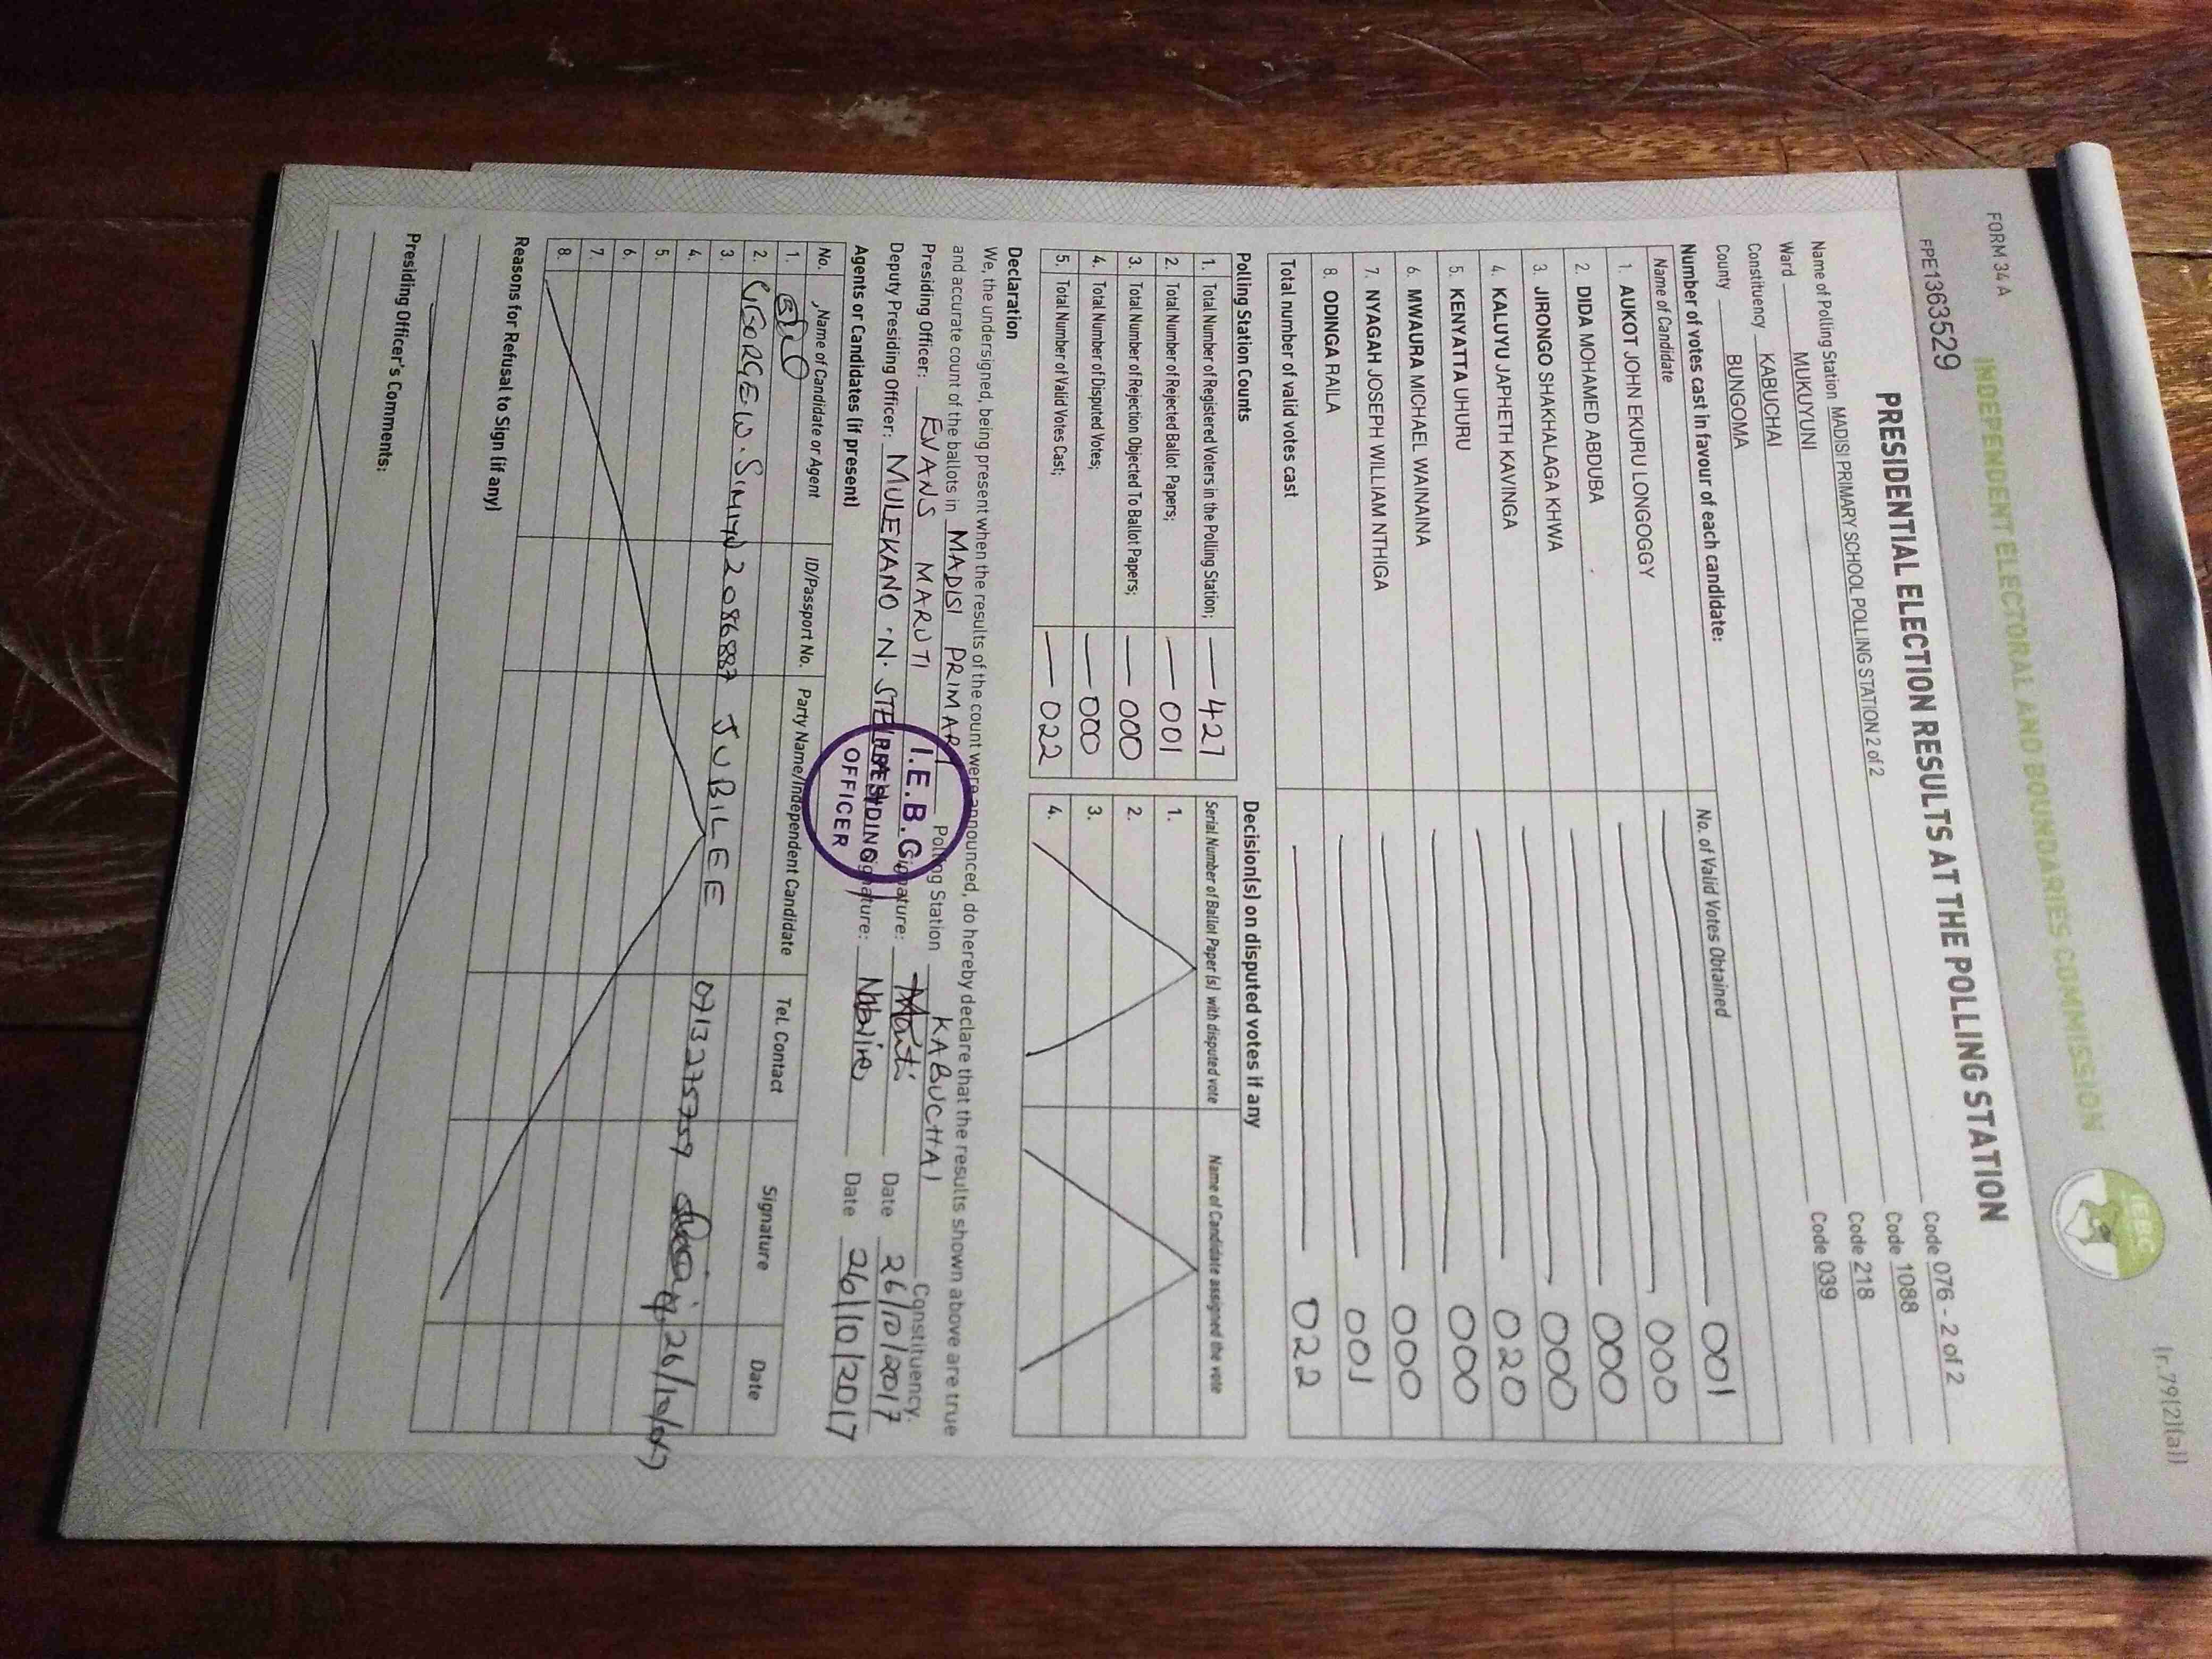 (r.79(2)(a))
FORM 34 A
INDEPENDENT ELECTORAL AND BOUNDARIES COMMISSION
IEBC
FPE1363529
PRESIDENTIAL ELECTION RESULTS AT THE POLLING STATION
Name of Polling Station MADISI PRIMARY SCHOOL POLLING STATION 2 of 2 Code 076 - 2 of 2
Ward MUKUYUNI Code 1088
Constituency KABUCHAI Code 218
County BUNGOMA Code 039
Number of votes cast in favour of each candidate:
Name of Candidate No. of Valid Votes Obtained
1. AUKOT JOHN EKURU LONGOGGY 001
2. DIDA MOHAMED ABDUBA 000
3. JIRONGO SHAKHALAGA KHWA 000
4. KALUYU JAPHETH KAVINGA 000
5. KENYATTA UHURU 020
6. MWAURA MICHAEL WAINAINA 000
7. NYAGAH JOSEPH WILLIAM NTHIGA 000
8. ODINGA RAILA 001
Total number of valid votes cast 022
Polling Station Counts
1. Total Number of Registered Voters in the Polling Station; 427
2. Total Number of Rejected Ballot Papers; 001
3. Total Number of Rejection Objected To Ballot Papers; 000
4. Total Number of Disputed Votes; 000
5. Total Number of Valid Votes Cast; 022
Decision(s) on disputed votes if any
Serial Number of Ballot Paper (s) with disputed vote Name of Candidate assigned the vote
1.
2.
3.
4.
Declaration
We, the undersigned, being present when the results of the count were announced, do hereby declare that the results shown above are true
and accurate count of the ballots in MADISI PRIMARY Polling Station KABUCHAI Constituency.
Presiding Officer: EVANS MARUTI Signature: Date 26/10/2017
Deputy Presiding Officer: MULEKANO .N. Signature: Date 26/10/2017
I.E.B.C
PRESIDING
OFFICER
Agents or Candidates (if present)
No. Name of Candidate or Agent ID/Passport No. Party Name/Independent Candidate Tel. Contact Signature Date
1.
2. GEORGE W. 2086887 JUBILEE 0713275759
3.
4.
5.
6.
7.
8.
Reasons for Refusal to Sign (if any)
Presiding Officer's Comments: